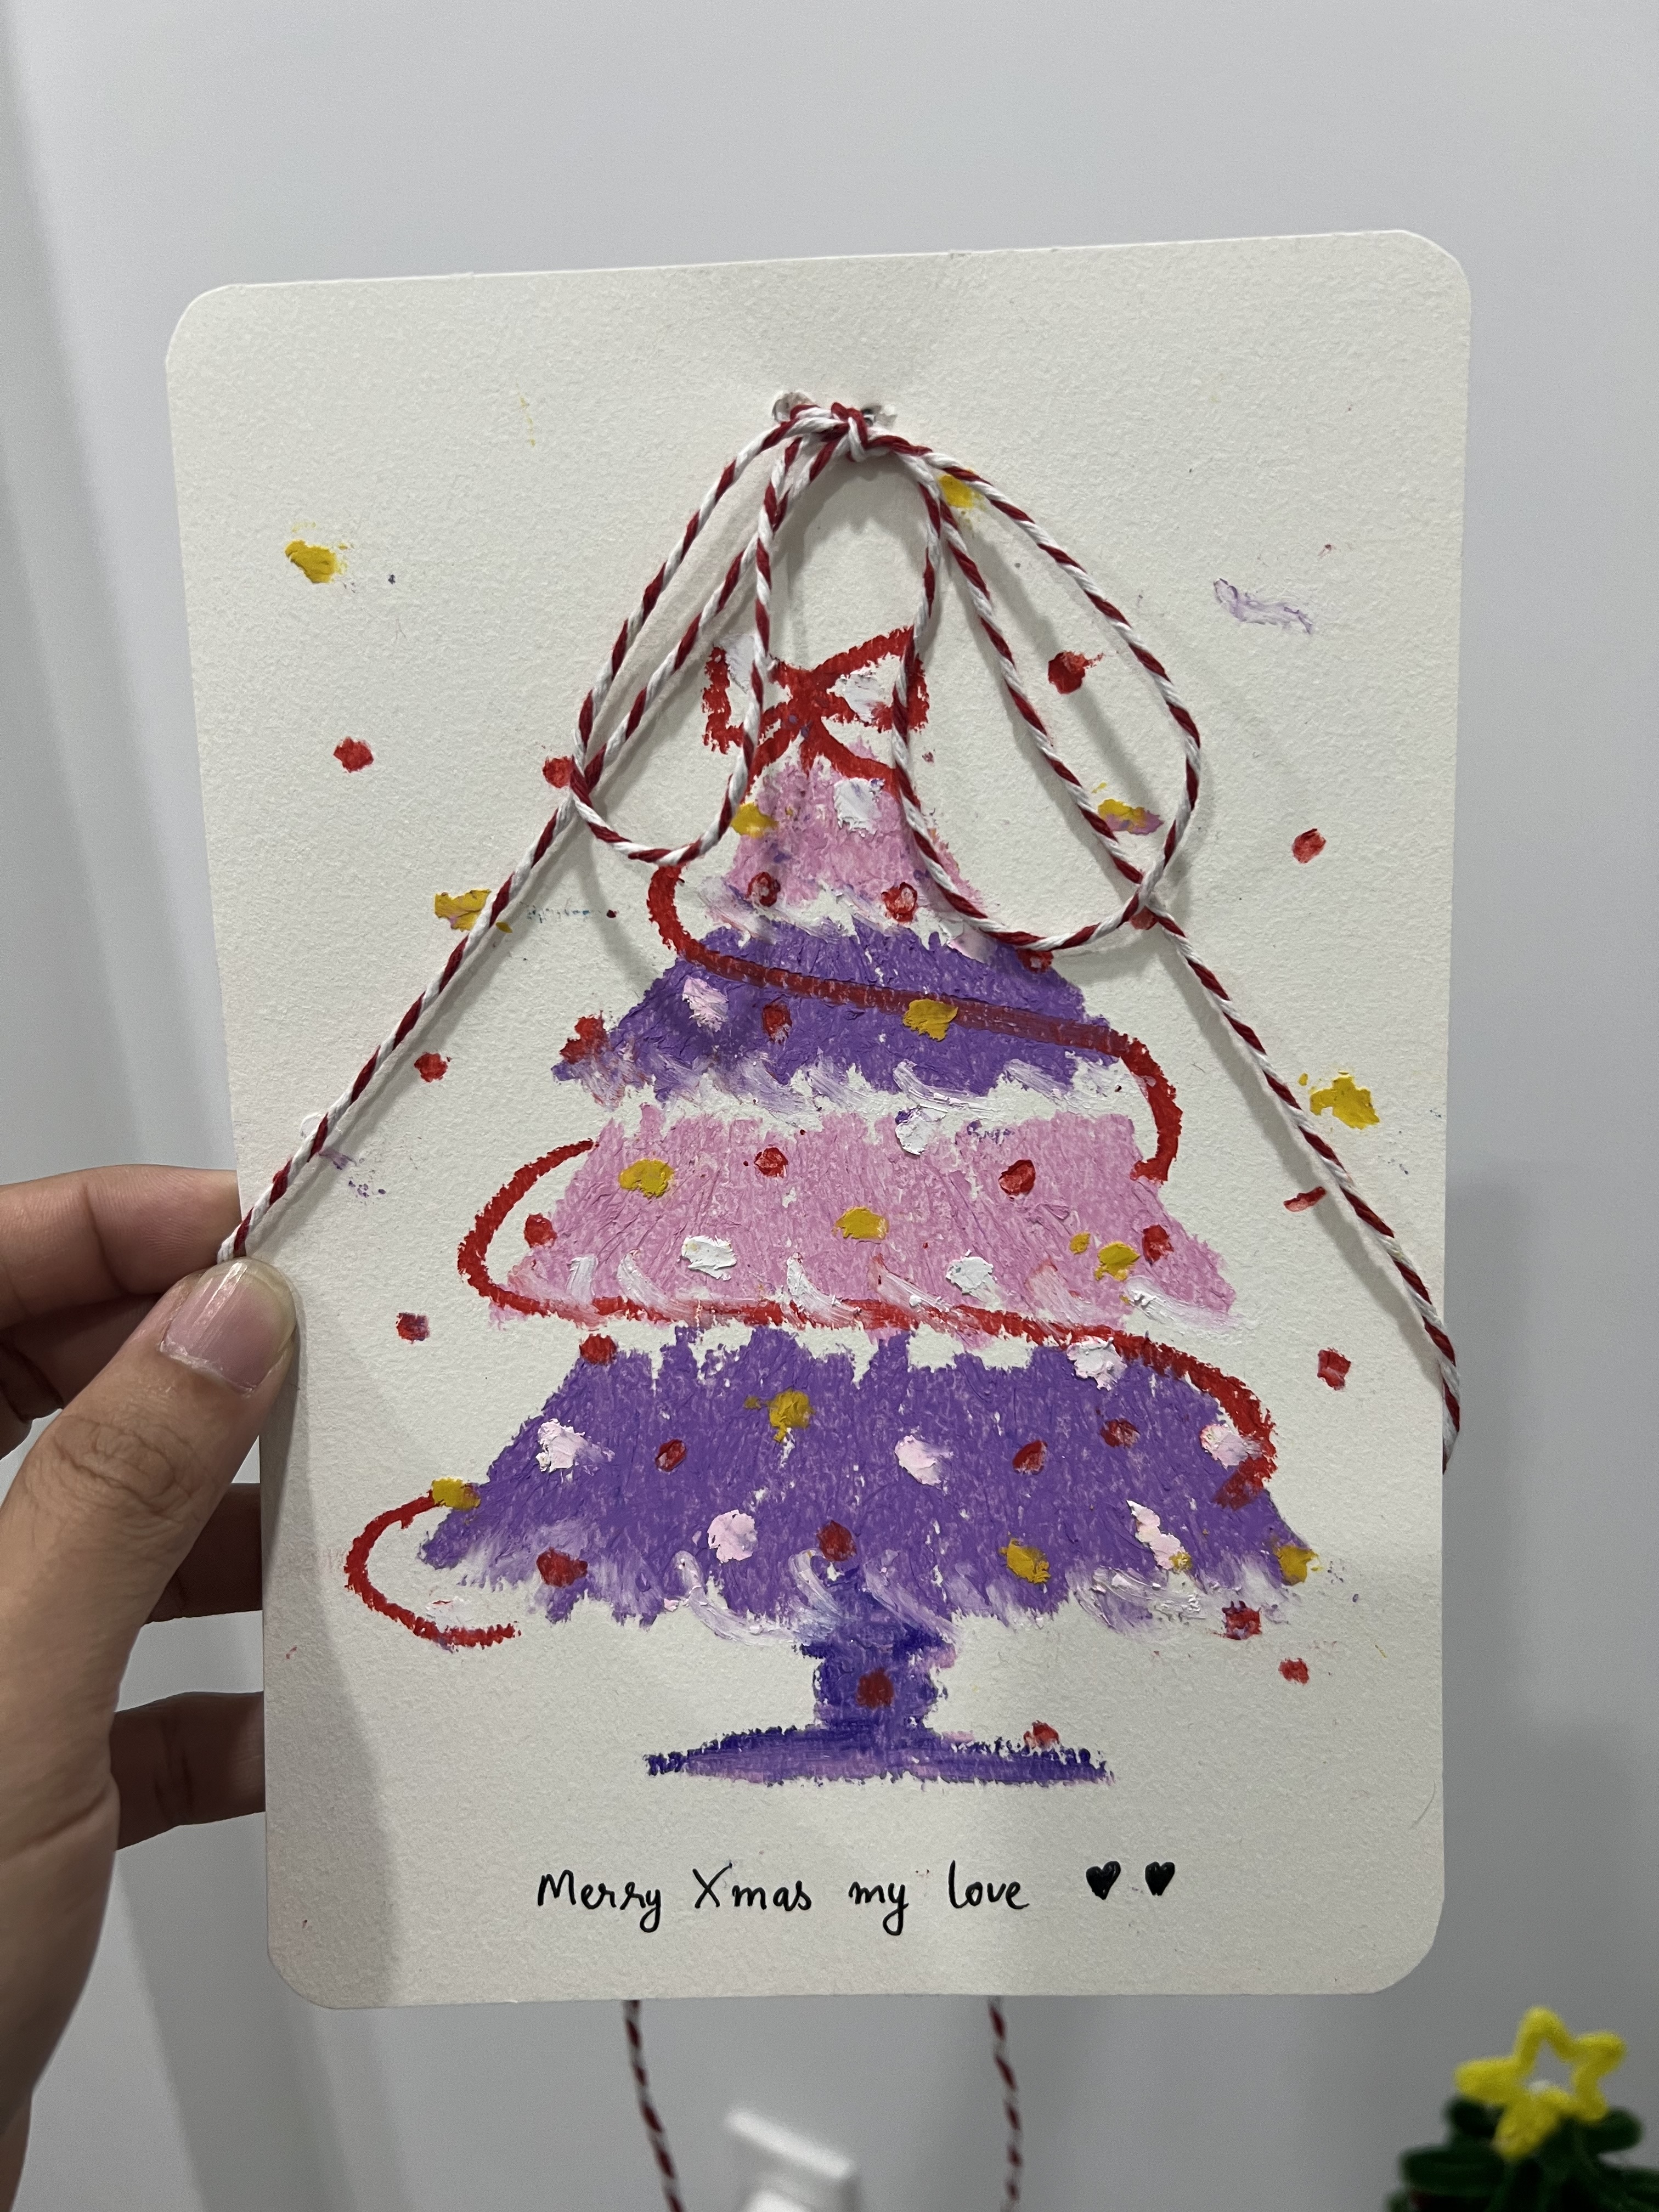 Merry Xmas my love ♥ ♥